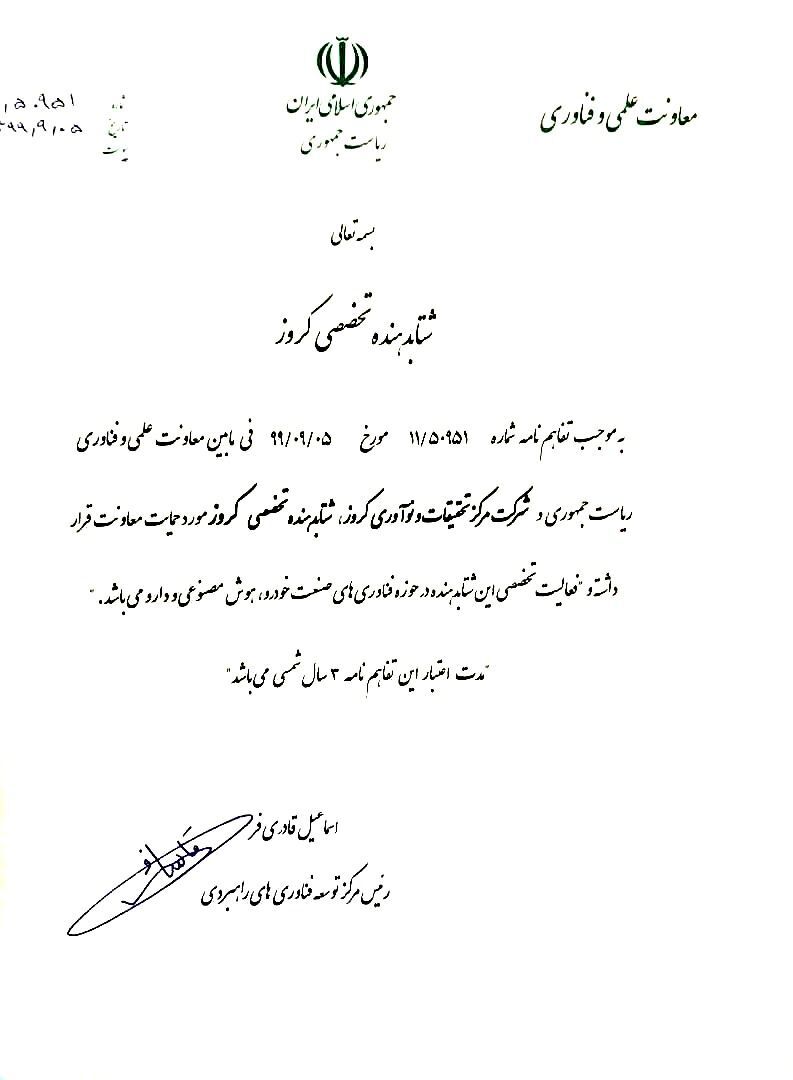 معاونت علمی و فناوری
جمهوری اسلامی ایران
ریاست جمهوری
۵۰۹۵۱
تاریخ ۹۹،۹،۰۵
پیوست
بسمه تعالی
شتابدهنده تخصصی کروز
به موجب تفاهم نامه شماره ۱۱/۵۰۹۵۱ مورخ ۹۹/۰۹/۰۵ فی مابین معاونت علمی و فناوری
ریاست جمهوری و شرکت مرکز تحقیقات و نوآوری کروز، شتابدهنده تخصصی کروز مورد حمایت معاونت قرار
داشته و "فعالیت تخصصی این شتابدهنده در حوزه فناوری های صنعت خودرو، هوش مصنوعی و دارو می باشد."
"مدت اعتبار این تفاهم نامه ۳ سال شمسی می باشد"
اسماعیل قادری فر
رئیس مرکز توسعه فناوری های راهبردی